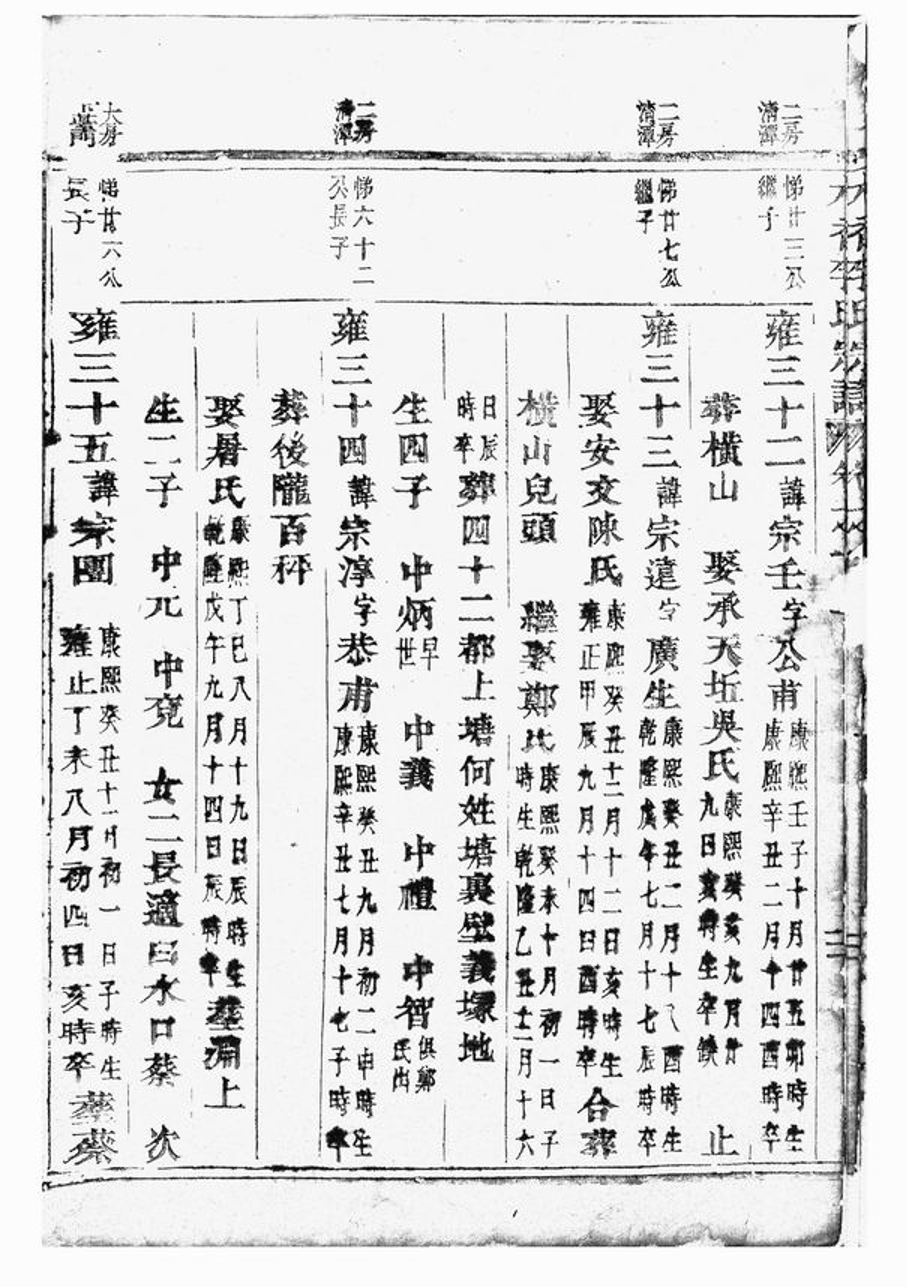 二房
清潭
悌廿三公
繼子
雍三十二諱宗壬字公甫康熙壬子十月廿五卯時生康熙辛丑二月十四酉時卒
葬橫山 娶承天坵吳氏康熙癸亥九月廿九日亥時生卒缺 止
二房
清潭
悌廿七公
繼子
雍三十三諱宗達字廣生康熙癸丑二月十八酉時生乾隆庚午年七月十七辰時卒
娶安文陳氏康熙癸丑十二月十二日亥時生雍正甲辰九月十四日酉時卒合葬
橫山兒頭 繼娶鄭氏康熙癸未十月初一日子時生乾隆乙丑十二月十六
日辰時卒葬四十二都上塘何姓塘裏壁義塚地
生四子 中炳早世 中義 中禮 中智俱鄭氏出
二房
清潭
悌六十二
公長子
雍三十四諱宗淳字恭甫康熙癸丑九月初二申時生康熙辛丑七月十七子時卒
葬後隴百秤
娶屠氏康熙丁巳八月十九日辰時生乾隆戊午九月十四日辰時卒墓淵上
生二子 中元 中兗 女二長適白水口蔡 次
大房
悌廿六公
長子
雍三十五諱宗團 康熙癸丑十一月初一日子時生雍正丁未八月初四日亥時卒葬蔡